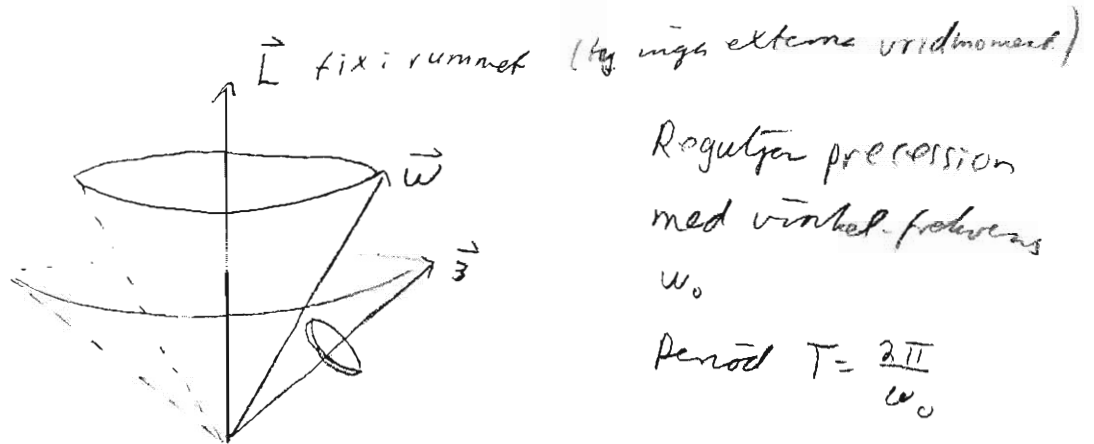 L⃗ fix i rummet (ty inga externa vridmoment)
Reguljär precession
ω⃗
med vinkelfrekvens
3⃗
ω₀
Period T = 2π/ω₀